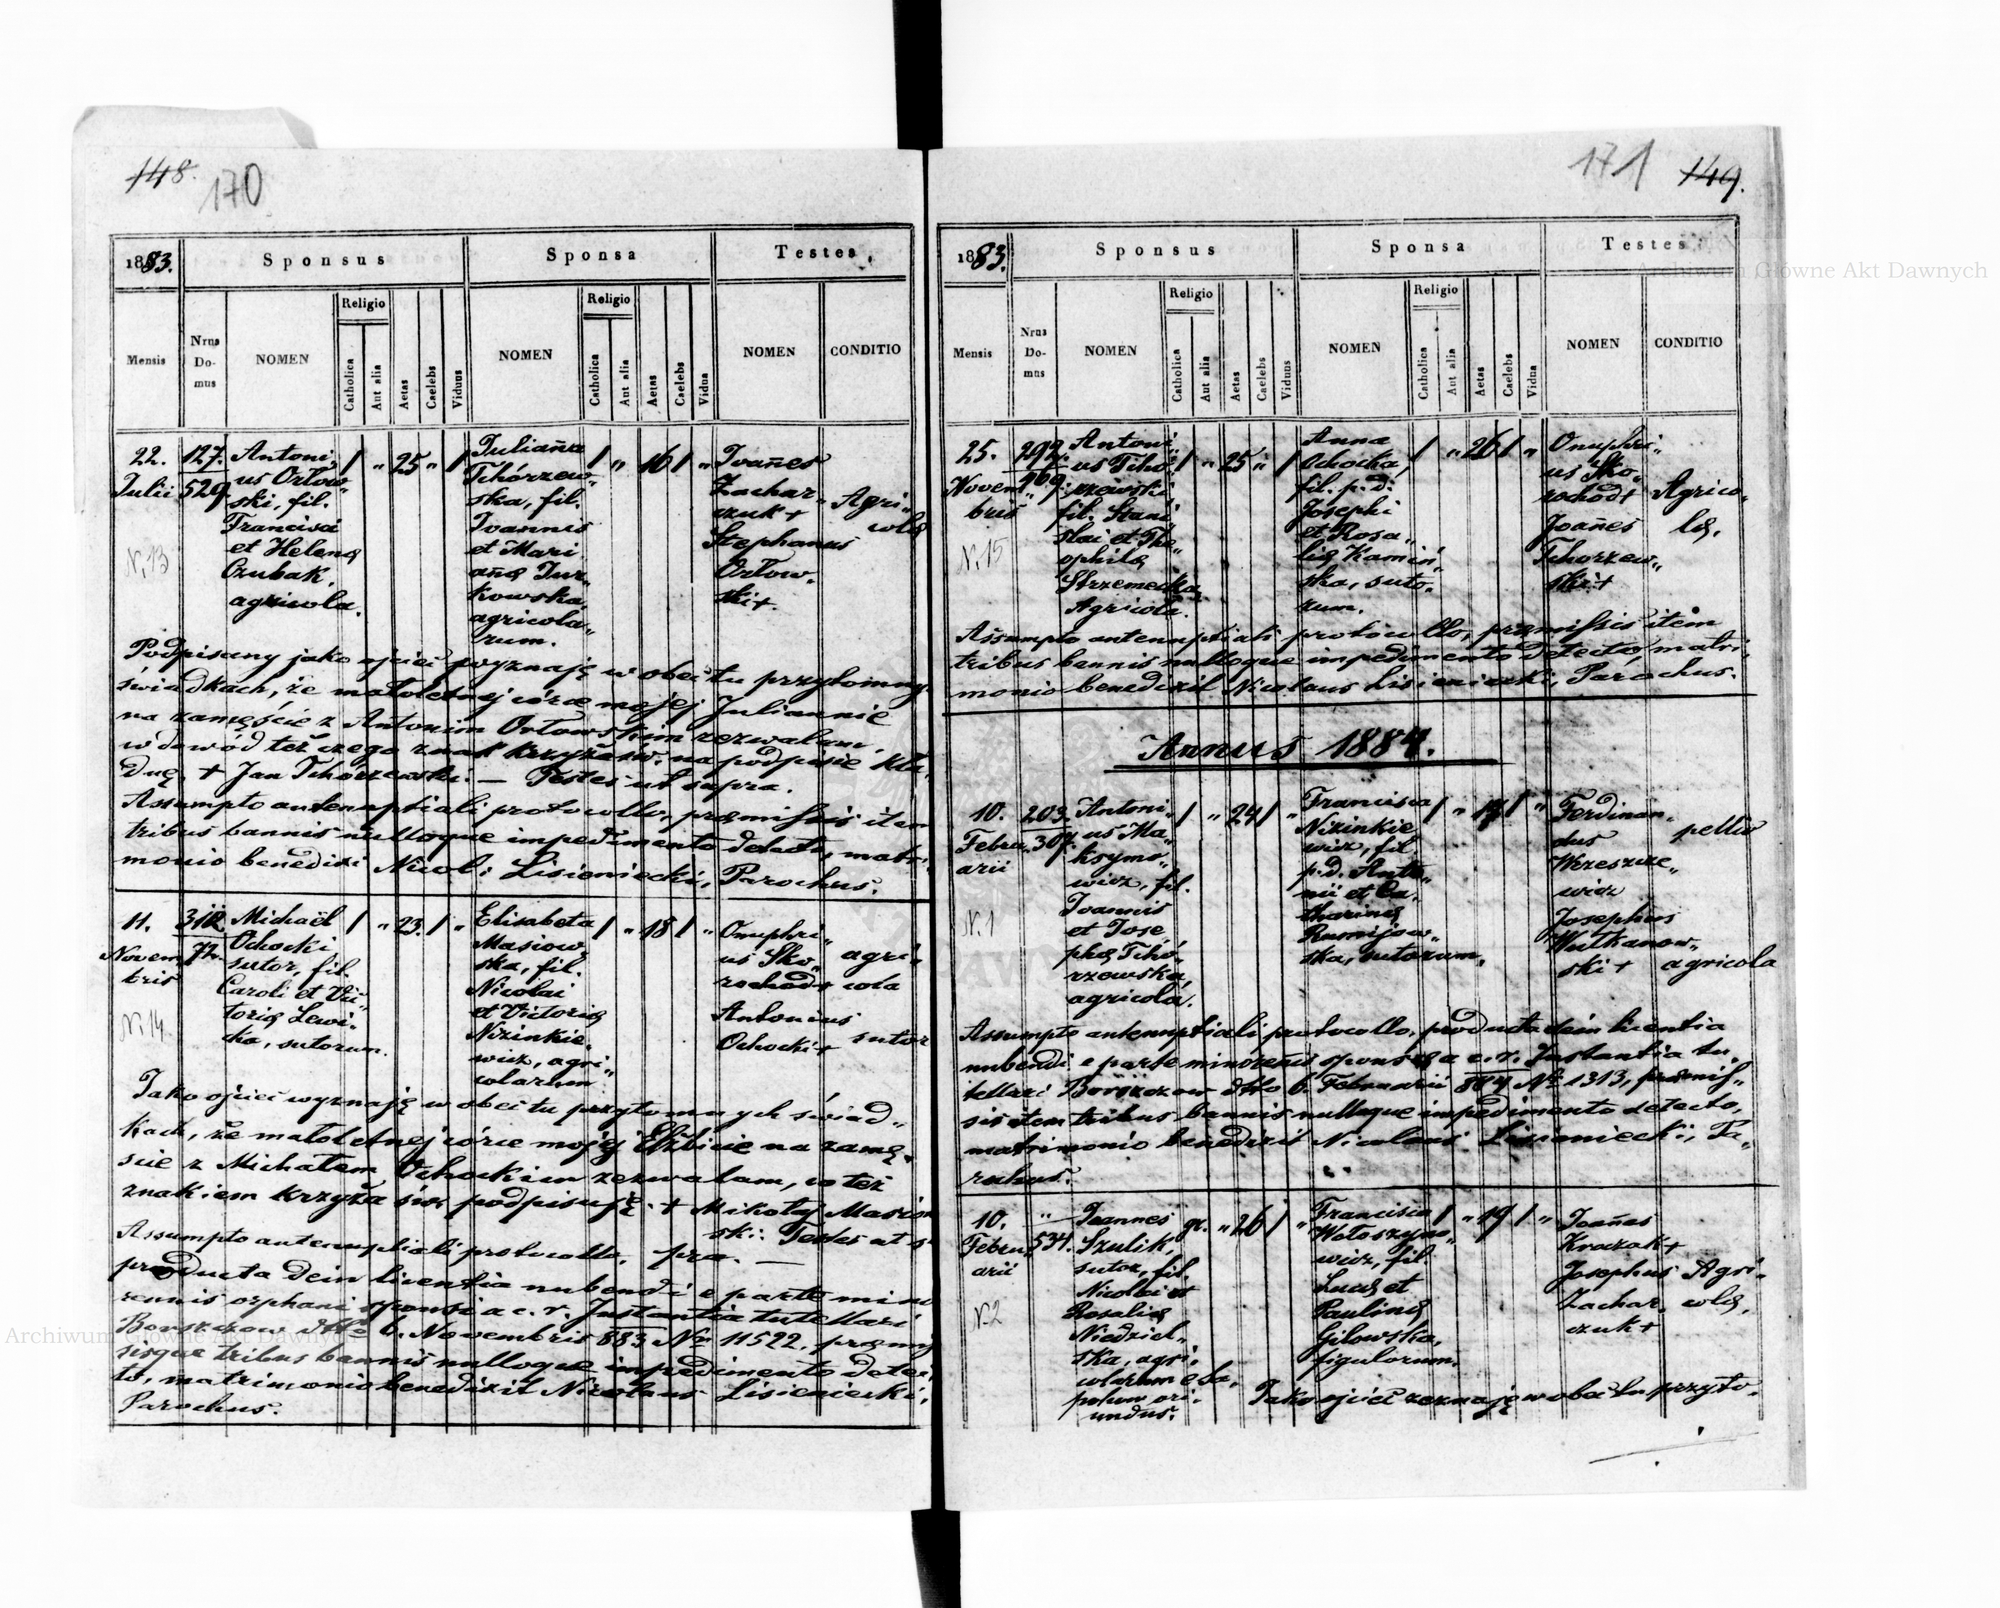 148.
170
1883.
Sponsus
Sponsa
Testes
Mensis
Nrus Do- mus
NOMEN
Religio
Catholica
Aut alia
Aetas
Caelebs
Viduus
NOMEN
Religio
Catholica
Aut alia
Aetas
Caelebs
Vidua
NOMEN
CONDITIO
22.
Julii
N. 13
127.
529.
Antoni
us Orłow-
ski, fil.
Francisci
et Helenæ
Czubak,
agricola.
/ " 25 " /
Julianna
Tchórzew-
ska, fil.
Ioannis
et Mari
annæ Jur-
kowska,
agricola-
rum.
/ " 16 / "
Ioañes
Zachar-
czuk +
Stephanus
Orłow-
ski +
Agri-
colæ
Podpisany jako ojciec poyznaję w obec tu przytomny
świadkach, że małoletnej córce mojej Juliannie
na zamęście z Antonim Orłowskim zezwalam,
w dowód też czego znak krzyża św. na podpisie kła-
dnę. + Jan Tchórzewski. — Testes ut supra.
Assumpto antenuptiali protocollo, præmissis item
tribus bannis nulloque impedimento detecto, matri
monio benedixi Nicol: Lisieniecki, Parochus.
11.
Novem
bris
N. 14
312
72.
Michaël
Ochocki
sutor, fil.
Caroli et Vic-
toriæ Lewi-
cka, sutorum.
/ " 23. / "
Elisabeta
Masiow
ska, fil.
Nicolai
et Victoriæ
Nizinkie-
wicz, agri-
colarum
/ " 18 / "
Onuphri-
us Sko-
rochod +
Antonius
Ochocki +
agri-
cola
sutor
Jako ojciec wyznaję w obec tu przytomnych świad-
kach, że małoletnej córce mojej Elżbicie na zamę-
scie z Michałem Ochockim zezwalam, co też
znakiem krzyża św. podpisuję. + Mikołaj Masiow
ski. Testes ut s
pra. —
Assumpto antenuptiali protocollo,
producta dein licentia nubendi e parte mino
rennis orphani sponsi a c. r. Instantia tutellari
Borszczow ddto 6. Novembris 883 No 11522, præmis
sisque tribus bannis nulloque impedimento detec-
to, matrimonio benedixit Nicolaus Lisieniecki,
Parochus.
171
149.
1883.
Sponsus
Sponsa
Testes
Mensis
Nrus Do- mus
NOMEN
Religio
Catholica
Aut alia
Aetas
Caelebs
Viduus
NOMEN
Religio
Catholica
Aut alia
Aetas
Caelebs
Vidua
NOMEN
CONDITIO
25.
Novem
bris
N. 15
292.
969.
Antoni
us Tchó-
rzewski
fil. Stani
slai et The-
ophilæ
Strzemecka,
Agricola.
/ " 25 " /
Anna
Ochocka,
fil. p. d.
Josephi
et Rosa-
liæ Kamiń-
ska, suto-
rum.
/ " 26 / "
Onuphri-
us Sko-
rochod +
Joañes
Tchorzew-
ski +
Agrico-
læ.
Assumpto antenuptiali protocollo, præmissis item
tribus bannis nulloque impedimento detecto, matri-
monio benedixit Nicolaus Lisieniecki, Parochus.
Annus 1884.
10.
Febru-
arii
N. 1
203.
307.
Antoni-
us Ma-
ksymo-
wicz, fil.
Ioannis
et Jose
phæ Tchó-
rzewska,
agricola.
/ " 24 /
Francisca
Nizinkie-
wicz, fil.
p. d. Anto-
nii et Ca-
tharinæ
Rumijow-
ska, sutorum.
/ " / "
Ferdinan-
dus
Wrzeszcze-
wicz
Josephus
Wulkanow-
ski +
pellio
agricola
Assumpto antenuptiali protocollo, producta dein licentia
nubendi e parte minorennis sponsæ a c. r. Instantia tu-
tellari Borszczow ddto 6. Februarii 884 No 1313, præmis-
sis item tribus bannis nulloque impedimento detecto,
matrimonio benedixit Nicolaus Lisieniecki, Pa-
rochus.
10.
Febru-
arii
N. 2
"
534.
Ioannes
Szulik,
sutor, fil.
Nicolai et
Rosaliæ
Niedziel-
ska, agri-
colarum e Sa-
pohow ori-
undus.
gr. " 26 / "
Francisca
Wołoszyno-
wicz, fil.
Lucæ et
Paulinæ
Gilowska,
figulorum.
/ " 19 / "
Ioañes
Krazak +
Josephus
Zachar-
czuk +
Agri-
colæ,
Jako ojciec zeznaję w obec tu przyto-
Archiwum Główne Akt Dawnych
Archiwum Główne Akt Dawnych